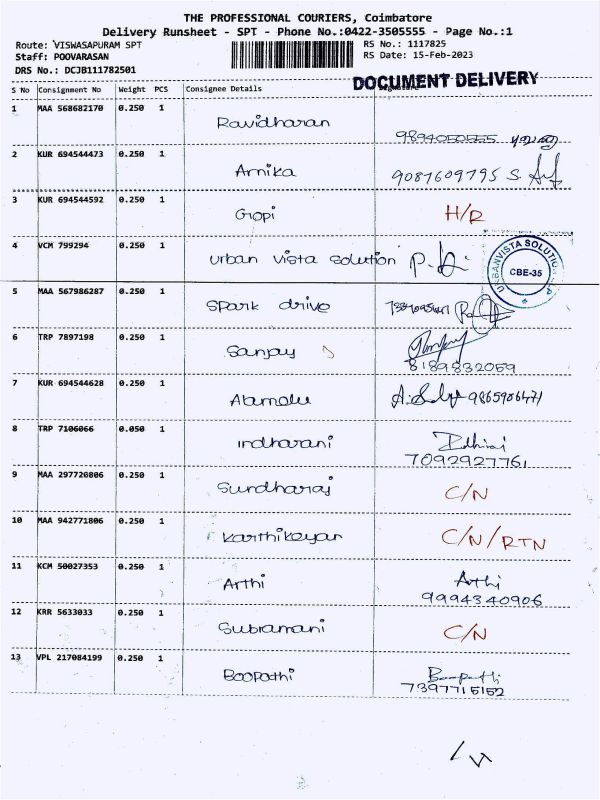 THE PROFESSIONAL COURIERS, Coimbatore
Delivery Runsheet - SPT - Phone No.:0422-3505555 - Page No.:1
Route: VISWASAPURAM SPT
Staff: POOVARASAN
DRS No.: DCJB111782501
RS No.: 1117825
RS Date: 15-Feb-2023
DOCUMENT DELIVERY
S No Consignment No Weight PCS Consignee Details
1 MAA 568682170 0.250 1 Ravidharan
2 KUR 694544473 0.250 1 Arnika 9087609795 S
3 KUR 694544592 0.250 1 Gopi H/R
4 VCM 799294 0.250 1 Urban Vista Solution
URBANVISTA SOLUTION
CBE-35
5 MAA 567986287 0.250 1 Spark drive
6 TRP 7897198 0.250 1 Sanjay
8189832059
7 KUR 694544628 0.250 1 Alamelu 9865906471
8 TRP 7106066 0.050 1 Indharani
7092927761
9 MAA 297720806 0.250 1 Sundharaj C/N
10 MAA 942771806 0.250 1 Karthikeyan C/N/RTN
11 KCM 50027353 0.250 1 Arthi Arthi
9994340906
12 KRR 5633033 0.250 1 Subramani C/N
13 VPL 217084199 0.250 1 Boopathi Boopathi
7397715152